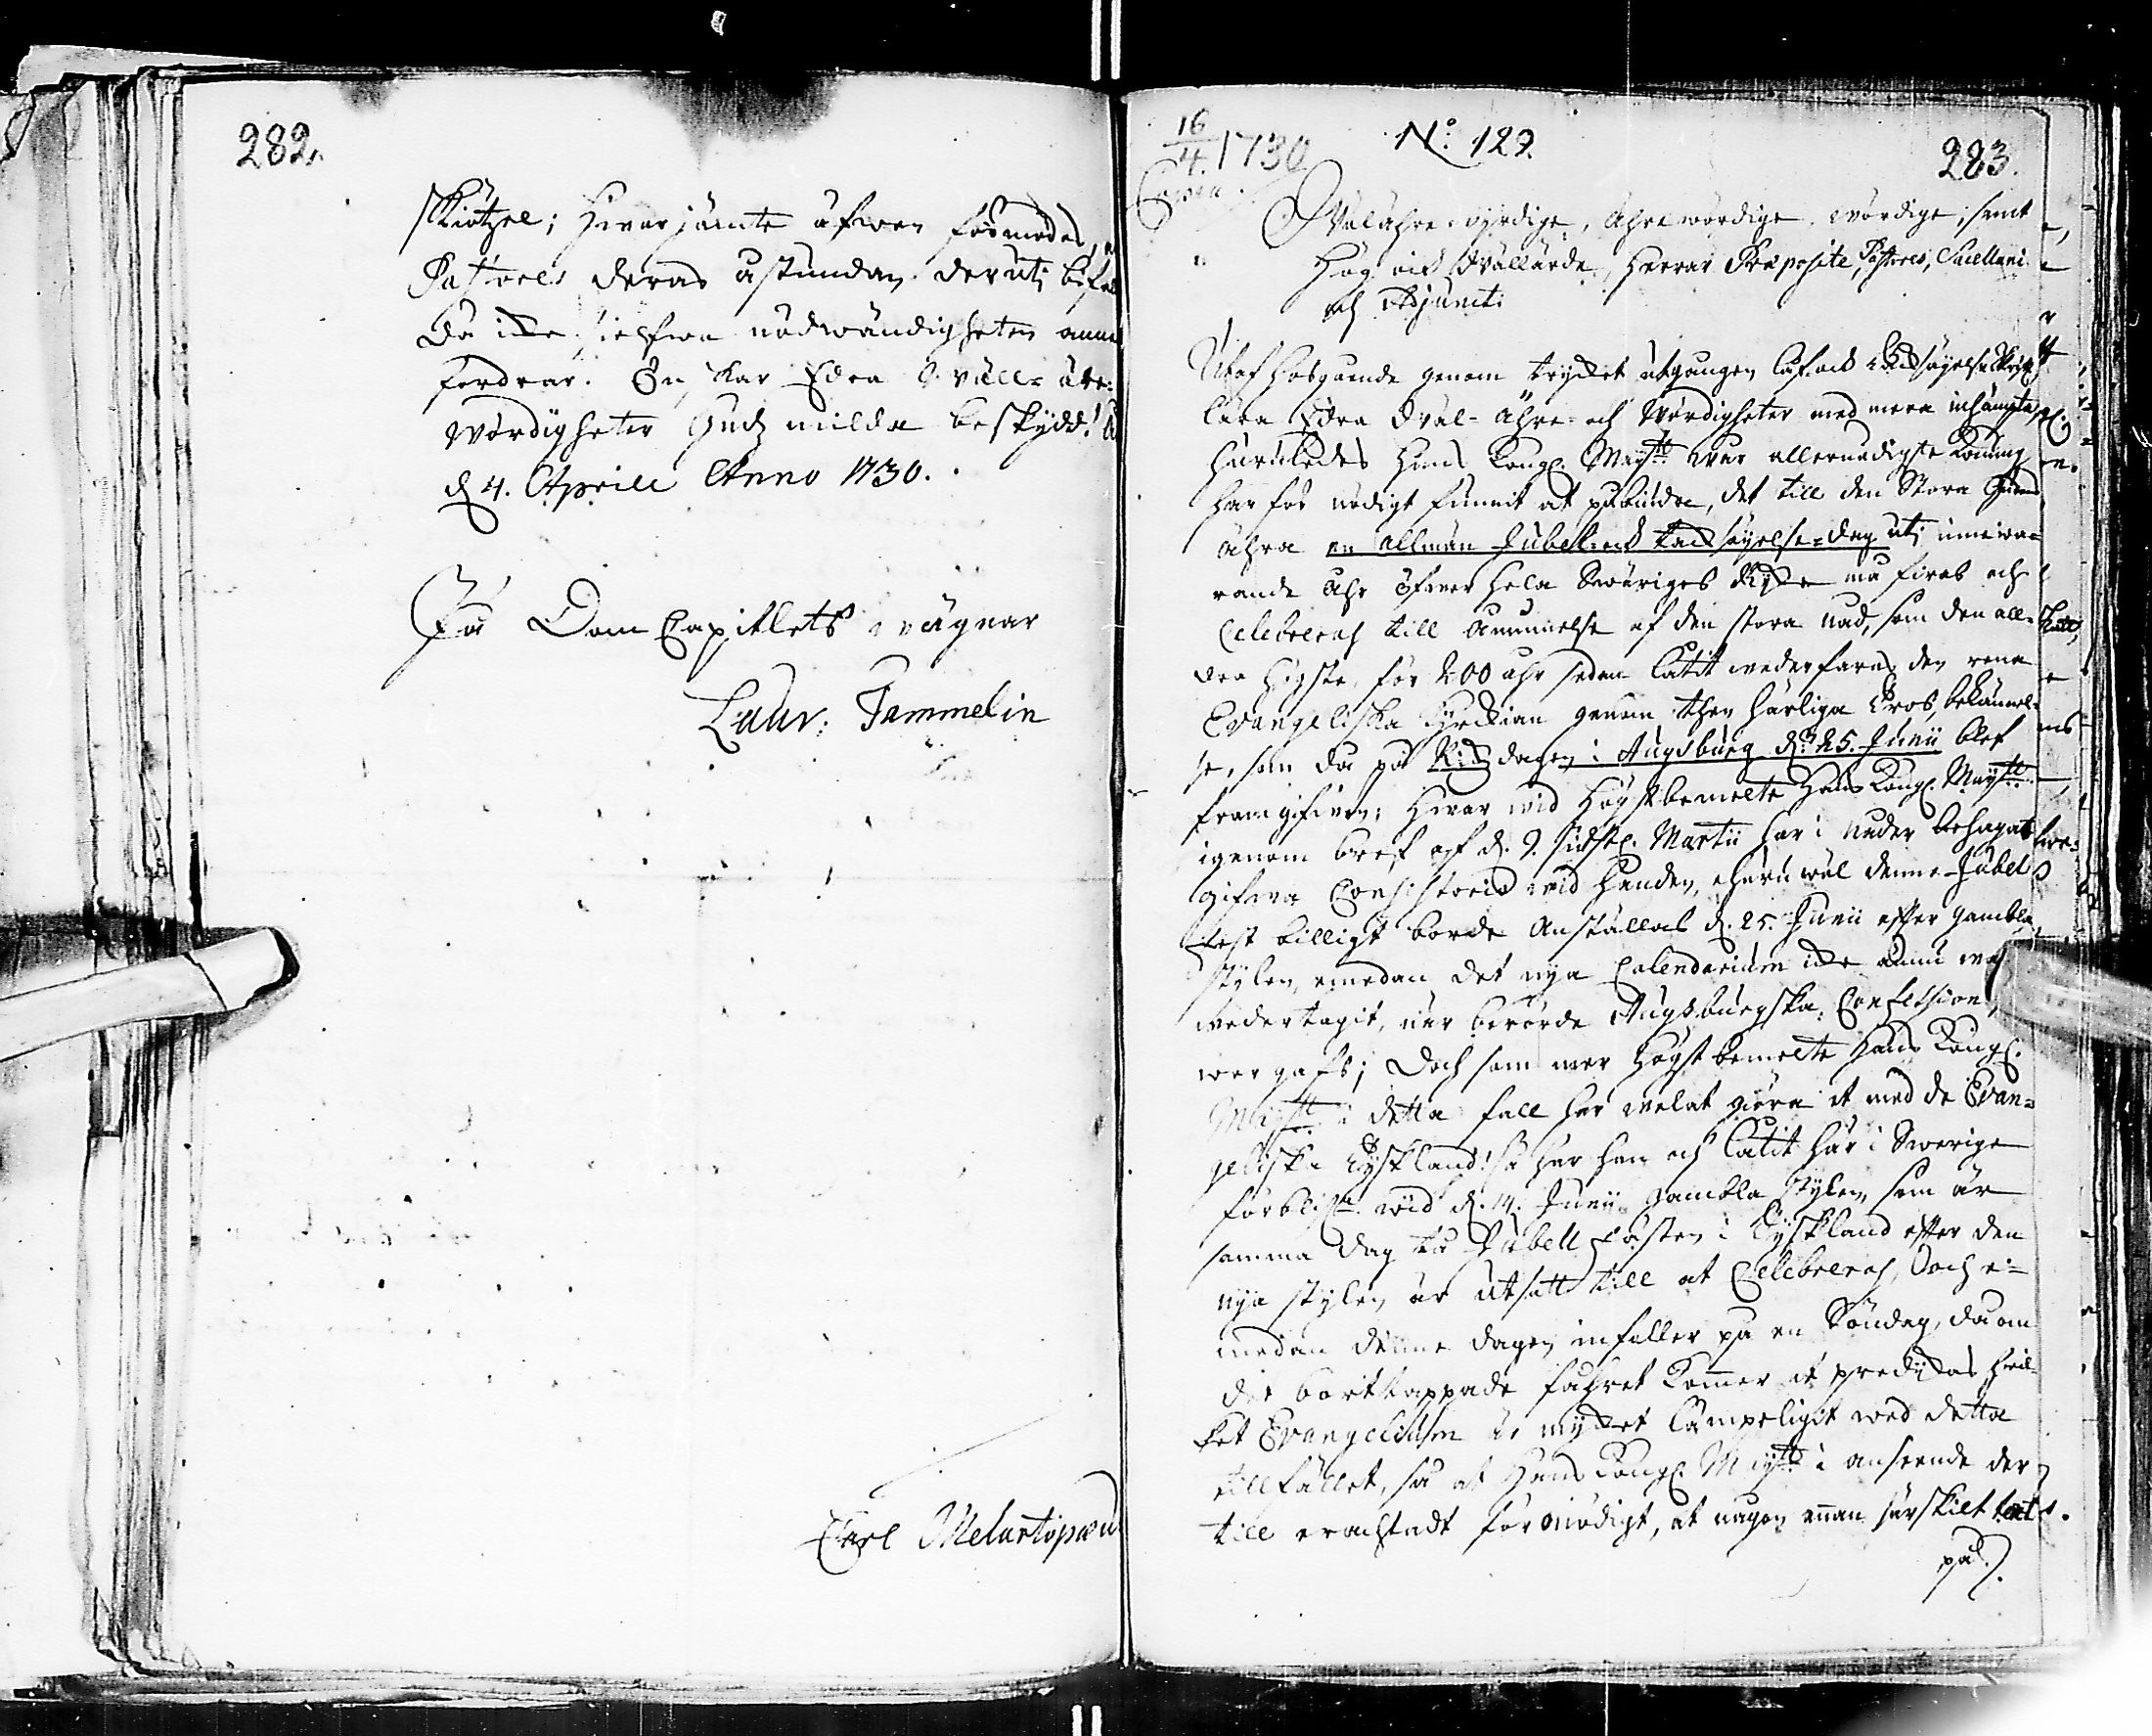 282.
skiötzel; Hwar jämte äfwen förmodas,
Pastores deras åstundan deruti
då icke sielfwa nödwändigheten
fordrar. Edra
Wördigheter Gudz milda beskydd!
d. 4. Aprill Anno 1730.
På Dom Capitlets wägnar
Laur: Tammelin
Carl Melartopæus
16/4. 1730
N:o 129.
283.
Wälähre wyrdige, Ährewördige, wördige, samt
Hög och Wällärde, Herrar Præposite, Pastores, Sacellani
och Adjuncti
Utaf hosgående genom trycket utgången
lära Edra Wäl-Ähre- och Wördigheter med mera inhämta,
huruledes Hans Kongl. Maij:tt wår allernådigste Konung
har för nödigt funnit at påbiuda, det till den Stora Guds
ähra en allmän Jubel- och tacksäyelse-dag uti innewa-
rande åhr öfwer hela Sweriges Rijke må firas och
Celebreras till åminnelse af den stora nåd, som den all-
dra högste för 200 åhr sedan låtit wederfaras den rena
Evangeliska Kyrckian genom then härliga Tros bekännel-
se, som då på Rikzdagen i Augsburg d. 25. Junii blef
framgifwen; Hwar wid Högstbemelte Hans Kongl. Maij:tt
igenom bref af d. 9. sidstl. Martii har i Nåder behagat
gifwa Consistorio wid handen, ehuru wäl denne Jubel
fest billigt borde anställas d. 25. Junii effter gambla
stylen, emedan det nya Calendarium icke ännu war
wedertagit, när berörde Augsburgska Confession,
wer gafs; Doch som mer högstbemelte Hans Kongl.
Maij:tt i detta fall har welat giöra it med de Evan-
geliska Tyskland! så har han och låtit här i Swerige
förblifwa wid d. 14. Junii gambla stylen, som är
samma dag då Jubell Fästen i Tyskland effter den
nya stylen är utsatt till at Celebreras, Doch e-
medan denne dagen infaller på en Söndag, då om
det borttappade fåhret kommer at predikas hwil-
ket Evangelium är mycket lämpeligit wed detta
tillfället, så at Hans Kongl. Maij:tt i anseende der
till erachtadt för onödigt, at någon annan särskilt text
på